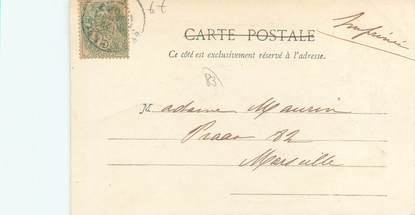 67
CARTE POSTALE
Imprimé
Ce côté est exclusivement réservé à l'adresse.
83
Madame Maurin
Prado 82
Marseille